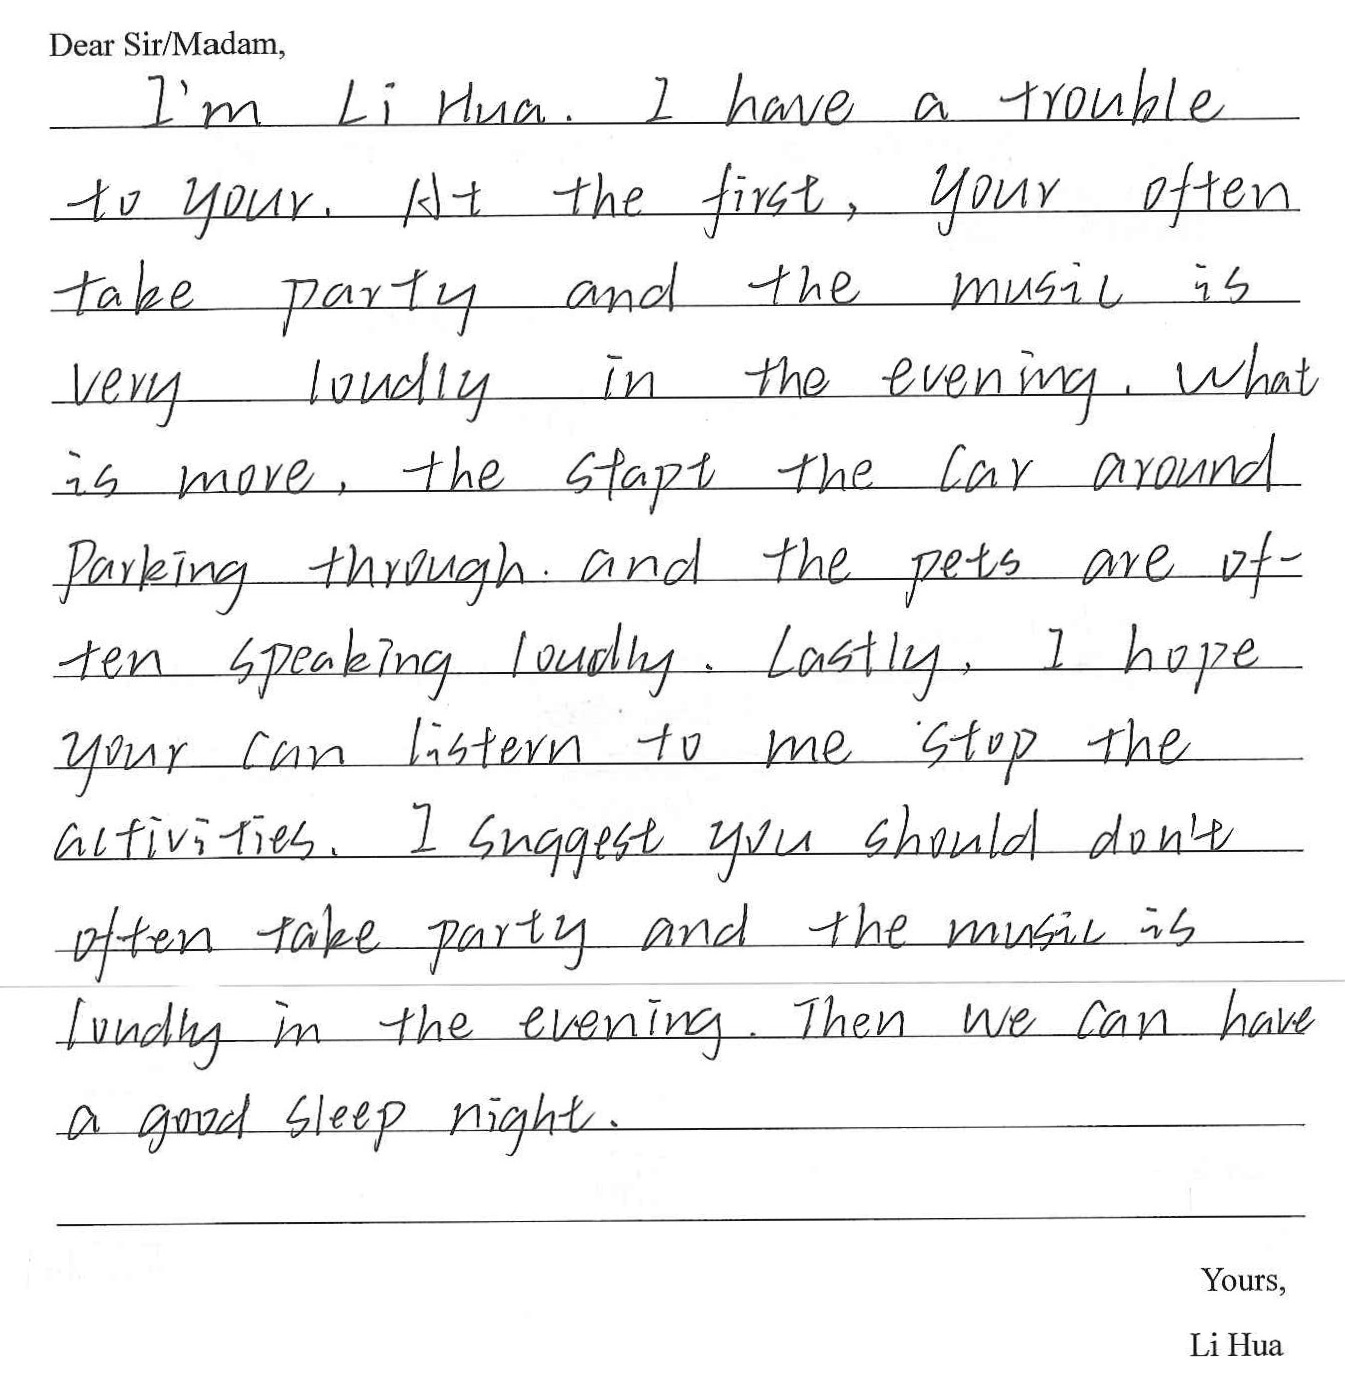 Dear Sir/Madam,
I'm Li Hua. I have a trouble
to your. At the first, your often
take party and the music is
very loudly in the evening. What
is more, the stapt the car around
Parking through. and the pets are of-
ten speaking loudly. Lastly, I hope
your can listern to me stop the
activities. I suggest you should don't
often take party and the music is
loudly in the evening. Then we can have
a good sleep night.
Yours,
Li Hua